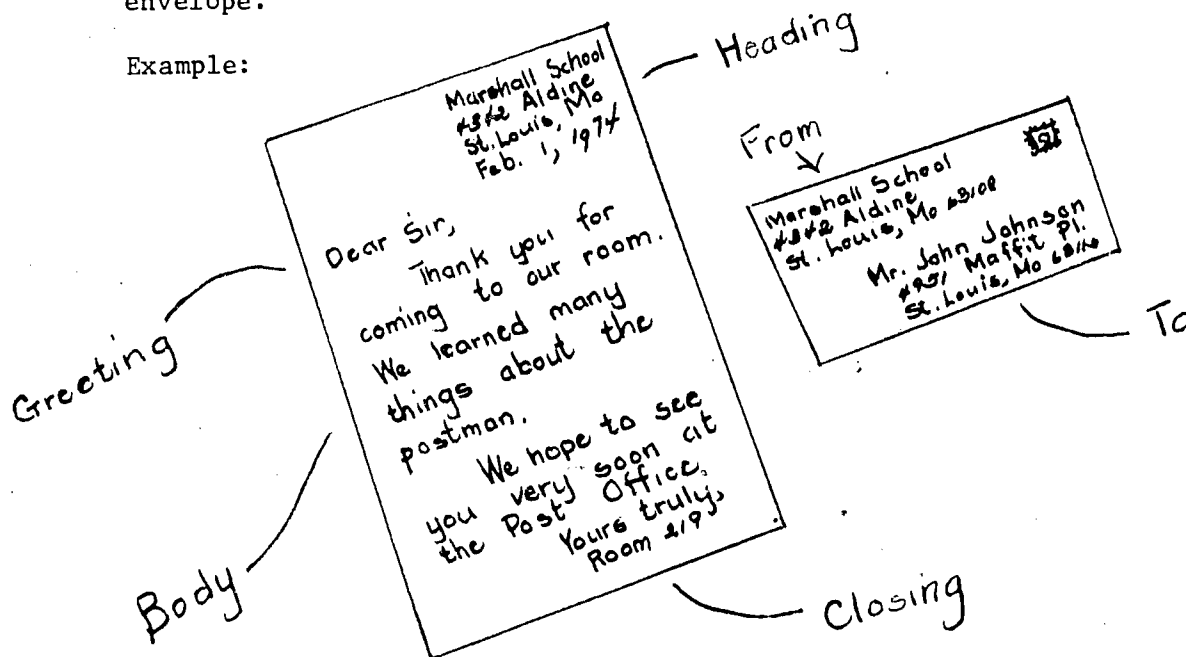 envelope.
Example:
Heading
Marshall School
4342 Aldine
St. Louis, Mo
Feb. 1, 1974
Dear Sir,
Thank you for
coming to our room.
We learned many
things about the
postman.
We hope to see
you very soon at
the Post Office.
Yours truly,
Room 219
Greeting
Body
Closing
From
Marshall School
4342 Aldine
St. Louis, Mo 63108
Mr. John Johnson
4951 Maffit Pl.
St. Louis, Mo
To